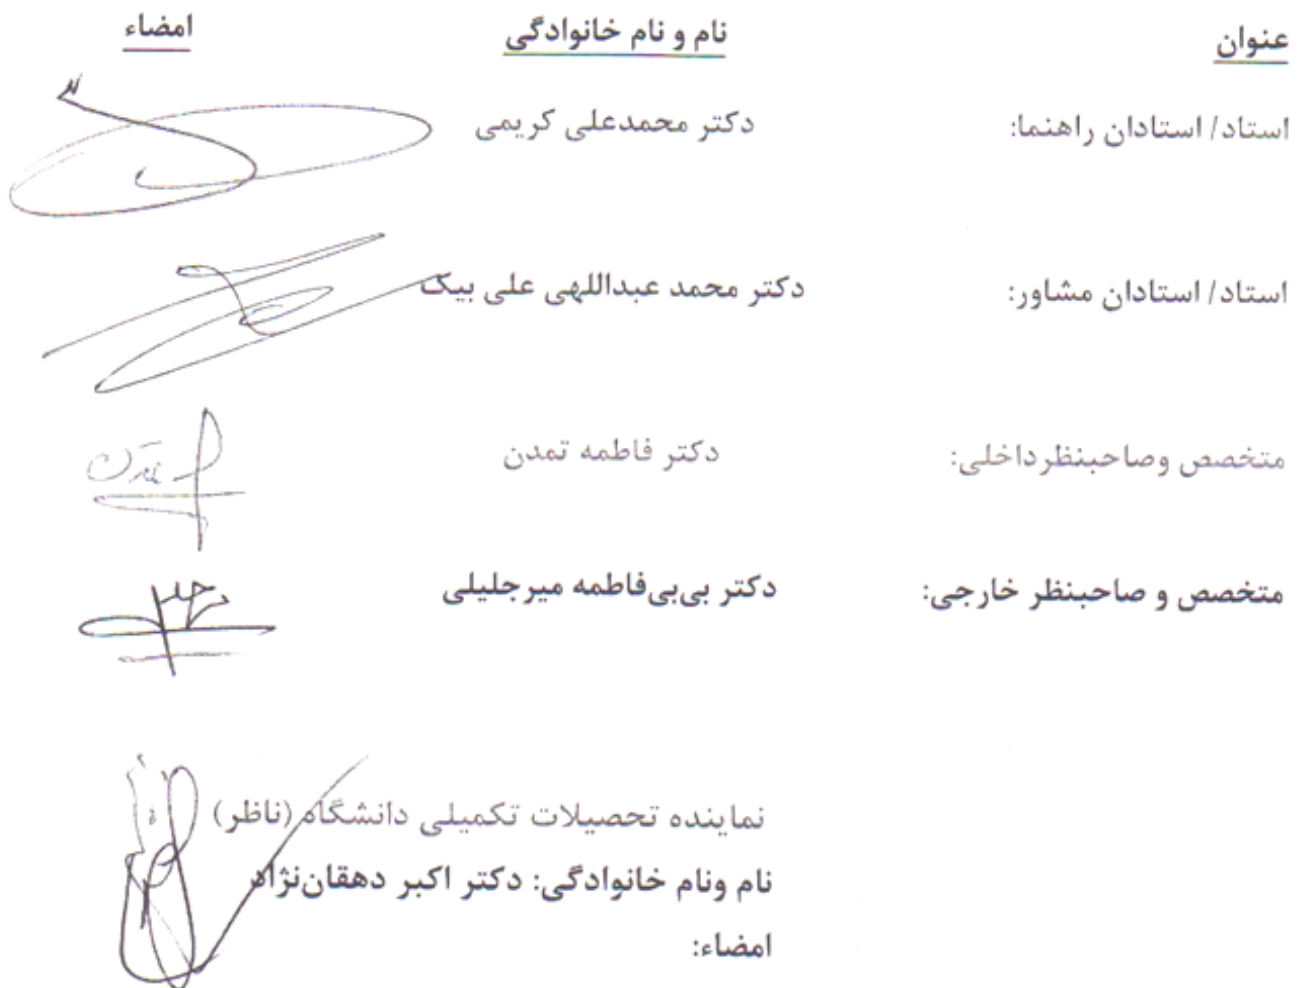 عنوان نام و نام خانوادگی امضاء
استاد/ استادان راهنما: دکتر محمدعلی کریمی
استاد/ استادان مشاور: دکتر محمد عبداللهی علی بیک
متخصص وصاحبنظرداخلی: دکتر فاطمه تمدن
متخصص و صاحبنظر خارجی: دکتر بی‌بی‌فاطمه میرجلیلی
نماینده تحصیلات تکمیلی دانشگاه (ناظر)
نام ونام خانوادگی: دکتر اکبر دهقان‌نژاد
امضاء: